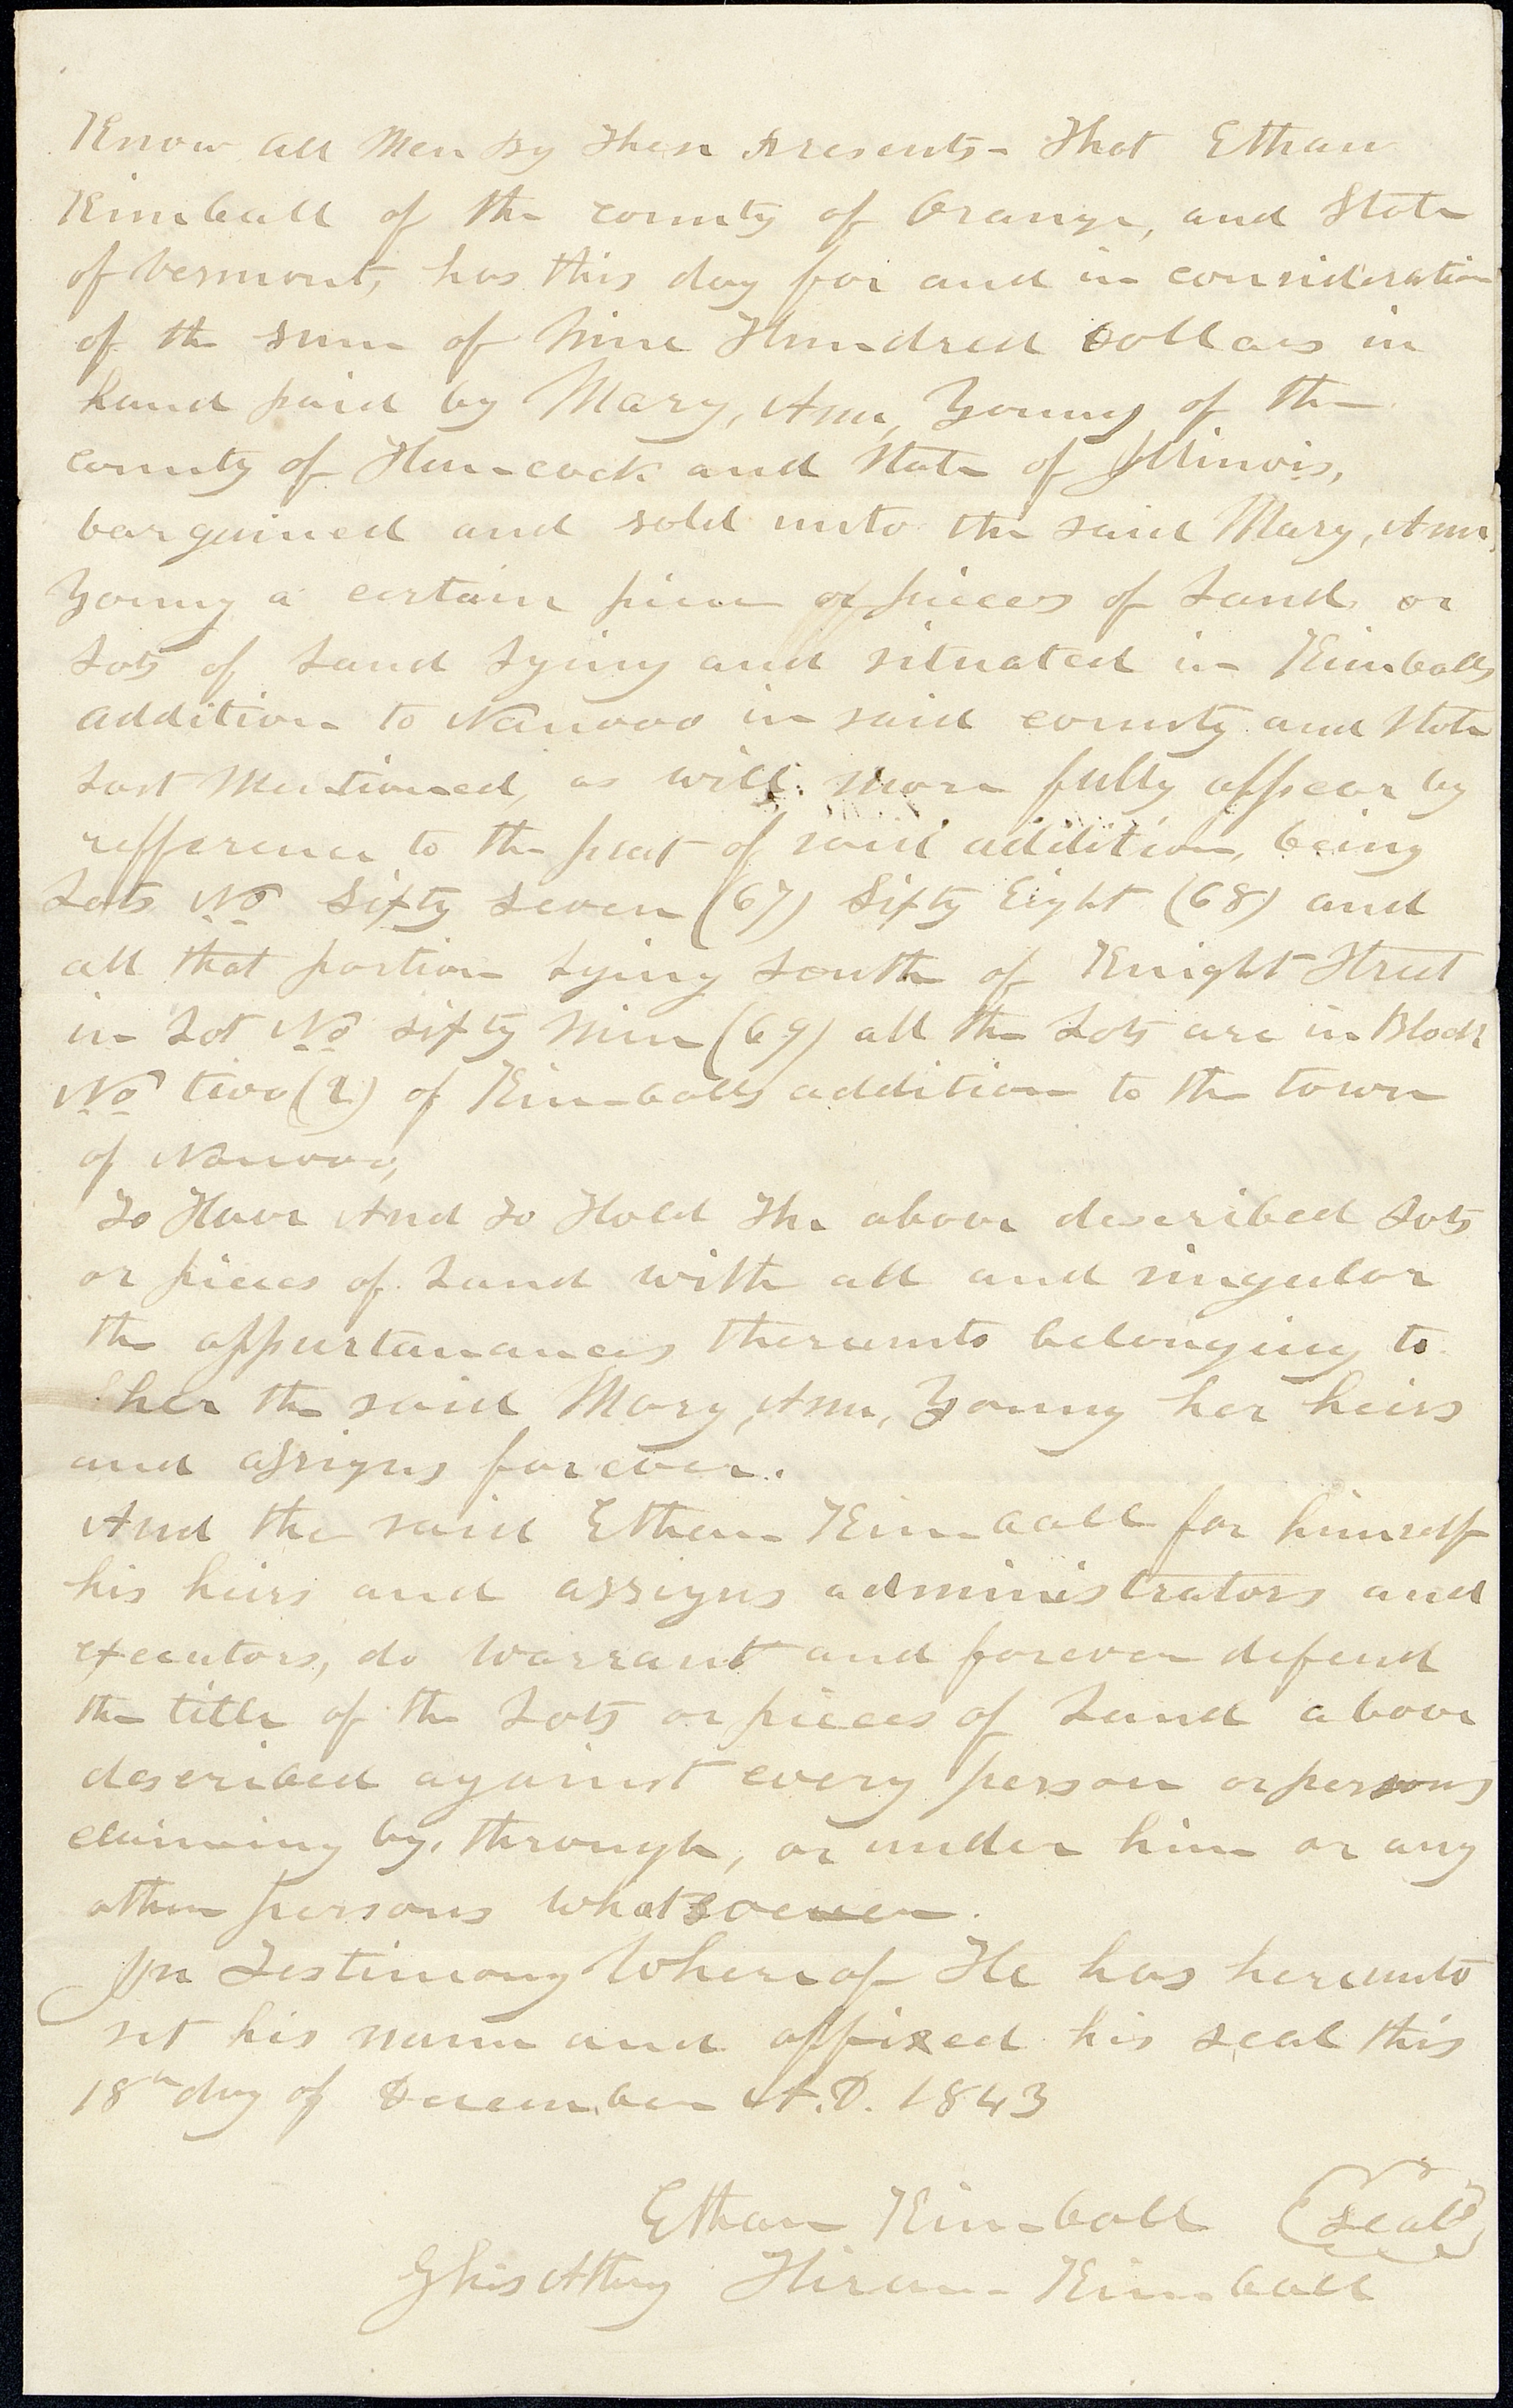 Know All Men By These Presents - That Ethan
Kimball of the county of Orange, and State
of Vermont, has this day for and in consideration
of the sum of Nine Hundred Dollars in
hand paid by Mary, Ann, Young of the
county of Hancock and State of Illinois,
bargained and sold unto the said Mary, Ann,
Young a certain piece or pieces of Land or
Lots of Land Lying and situated in Kimballs
addition to Nauvoo in said county and State
Last Mentioned, as will more fully appear by
refference to the plat of said addition, being
Lots No Sixty Seven (67) Sixty Eight (68) and
all that portion Lying South of Knight Street
in Lot No Sixty Nine (69) all the Lots are in Block
No two (2) of Kimballs addition to the town
of Nauvoo,
To Have And To Hold The above described Lots
or pieces of Land with all and singular
the appurtanances thereunto belonging to
her the said Mary, Ann, Young her heirs
and assigns forever.
And the said Ethan Kimball for himself
his heirs and assigns administrators and
executors, do warrant and forever defend
the title of the Lots or pieces of Land above
described against every person or persons
claiming by, through, or under him or any
other persons whatsoever.
In Testimony Whereof He has hereunto
set his name and affixed his seal this
18th day of December A.D. 1843
Ethan Kimball (Seal)
By his Attny Hiram Kimball